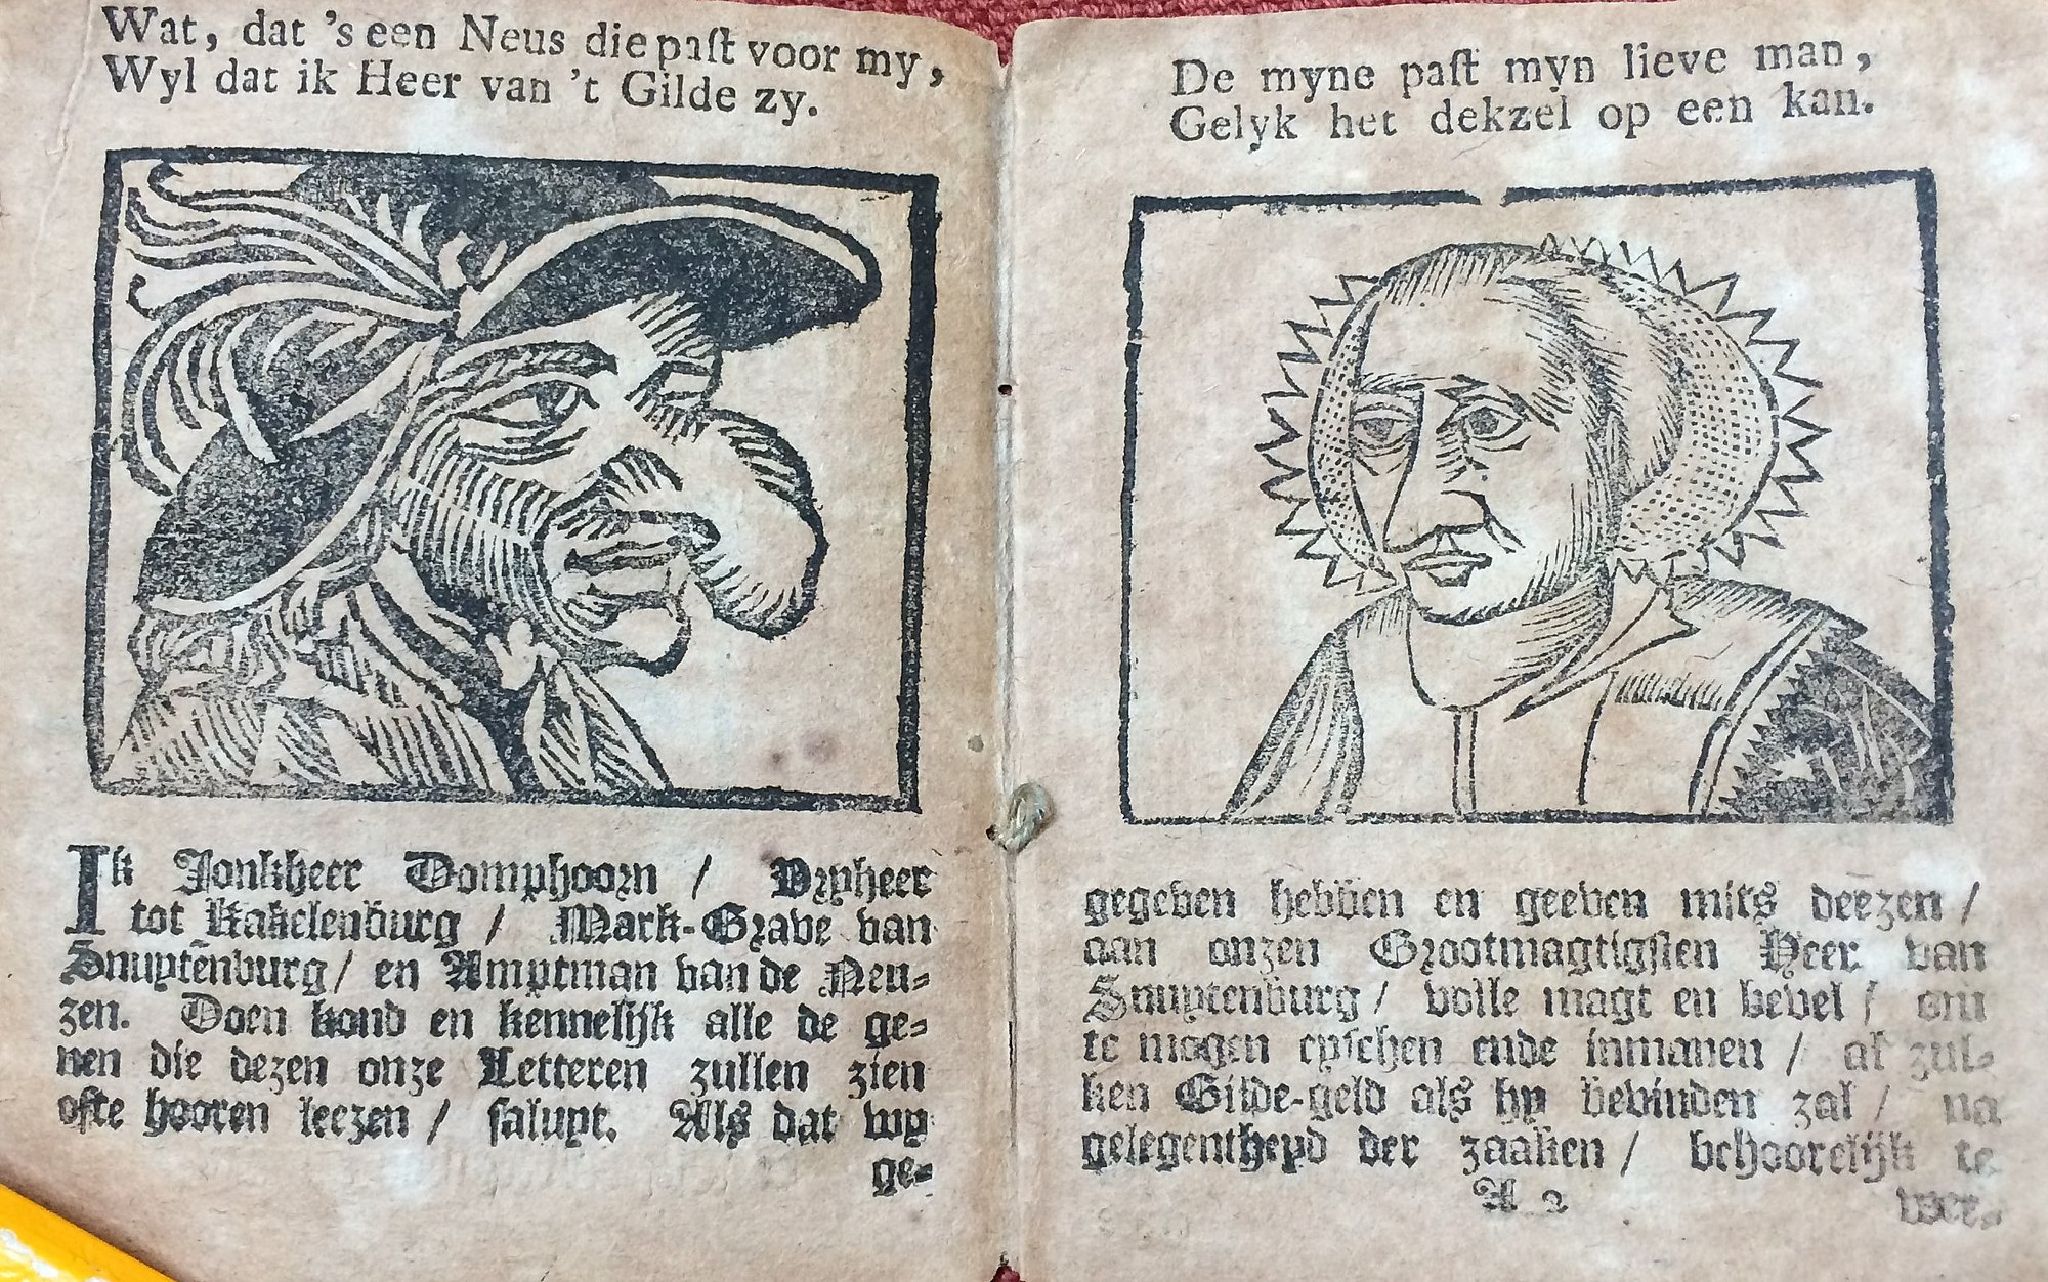 Wat, dat 's een Neus die paſt voor my,
Wyl dat ik Heer van 't Gilde zy.
Ik Jonkheer Domphoorn / Vryheer
tot Kakelenburg / Mark-Grave van
Snuytenburg / en Amptman van de Neu-
zen. Doen kond en kennelijk alle de ge-
nen die dezen onze Letteren zullen zien
ofte hooren leezen / saluyt. Als dat wy
ge-
De myne paſt myn lieve man,
Gelyk het dekzel op een kan.
gegeven hebben en geeven mits deezen /
aan onzen Grootmagtigſten Heer van
Snuytenburg / volle magt en bevel / om
te mogen eyſchen ende inmanen / al zul-
ken Gilde-geld als hy bevinden zal / na
gelegentheyd der zaaken / behoorelijk te
A 2
wer-